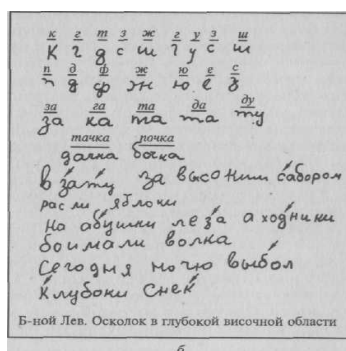 к г т з ж г у з ш
К г д с ш г у с ш
п д ф ж ю е с
п д ф ж ю ё з
за га та да ду
за ка та та ту
тачка почка
дачка бочка
в зату за высоким сабором
расли яблоки
на абушки леза а ходники
боимали волка
Сегодня ночю выбол
Клубоки снек
Б-ной Лев. Осколок в глубокой височной области
б